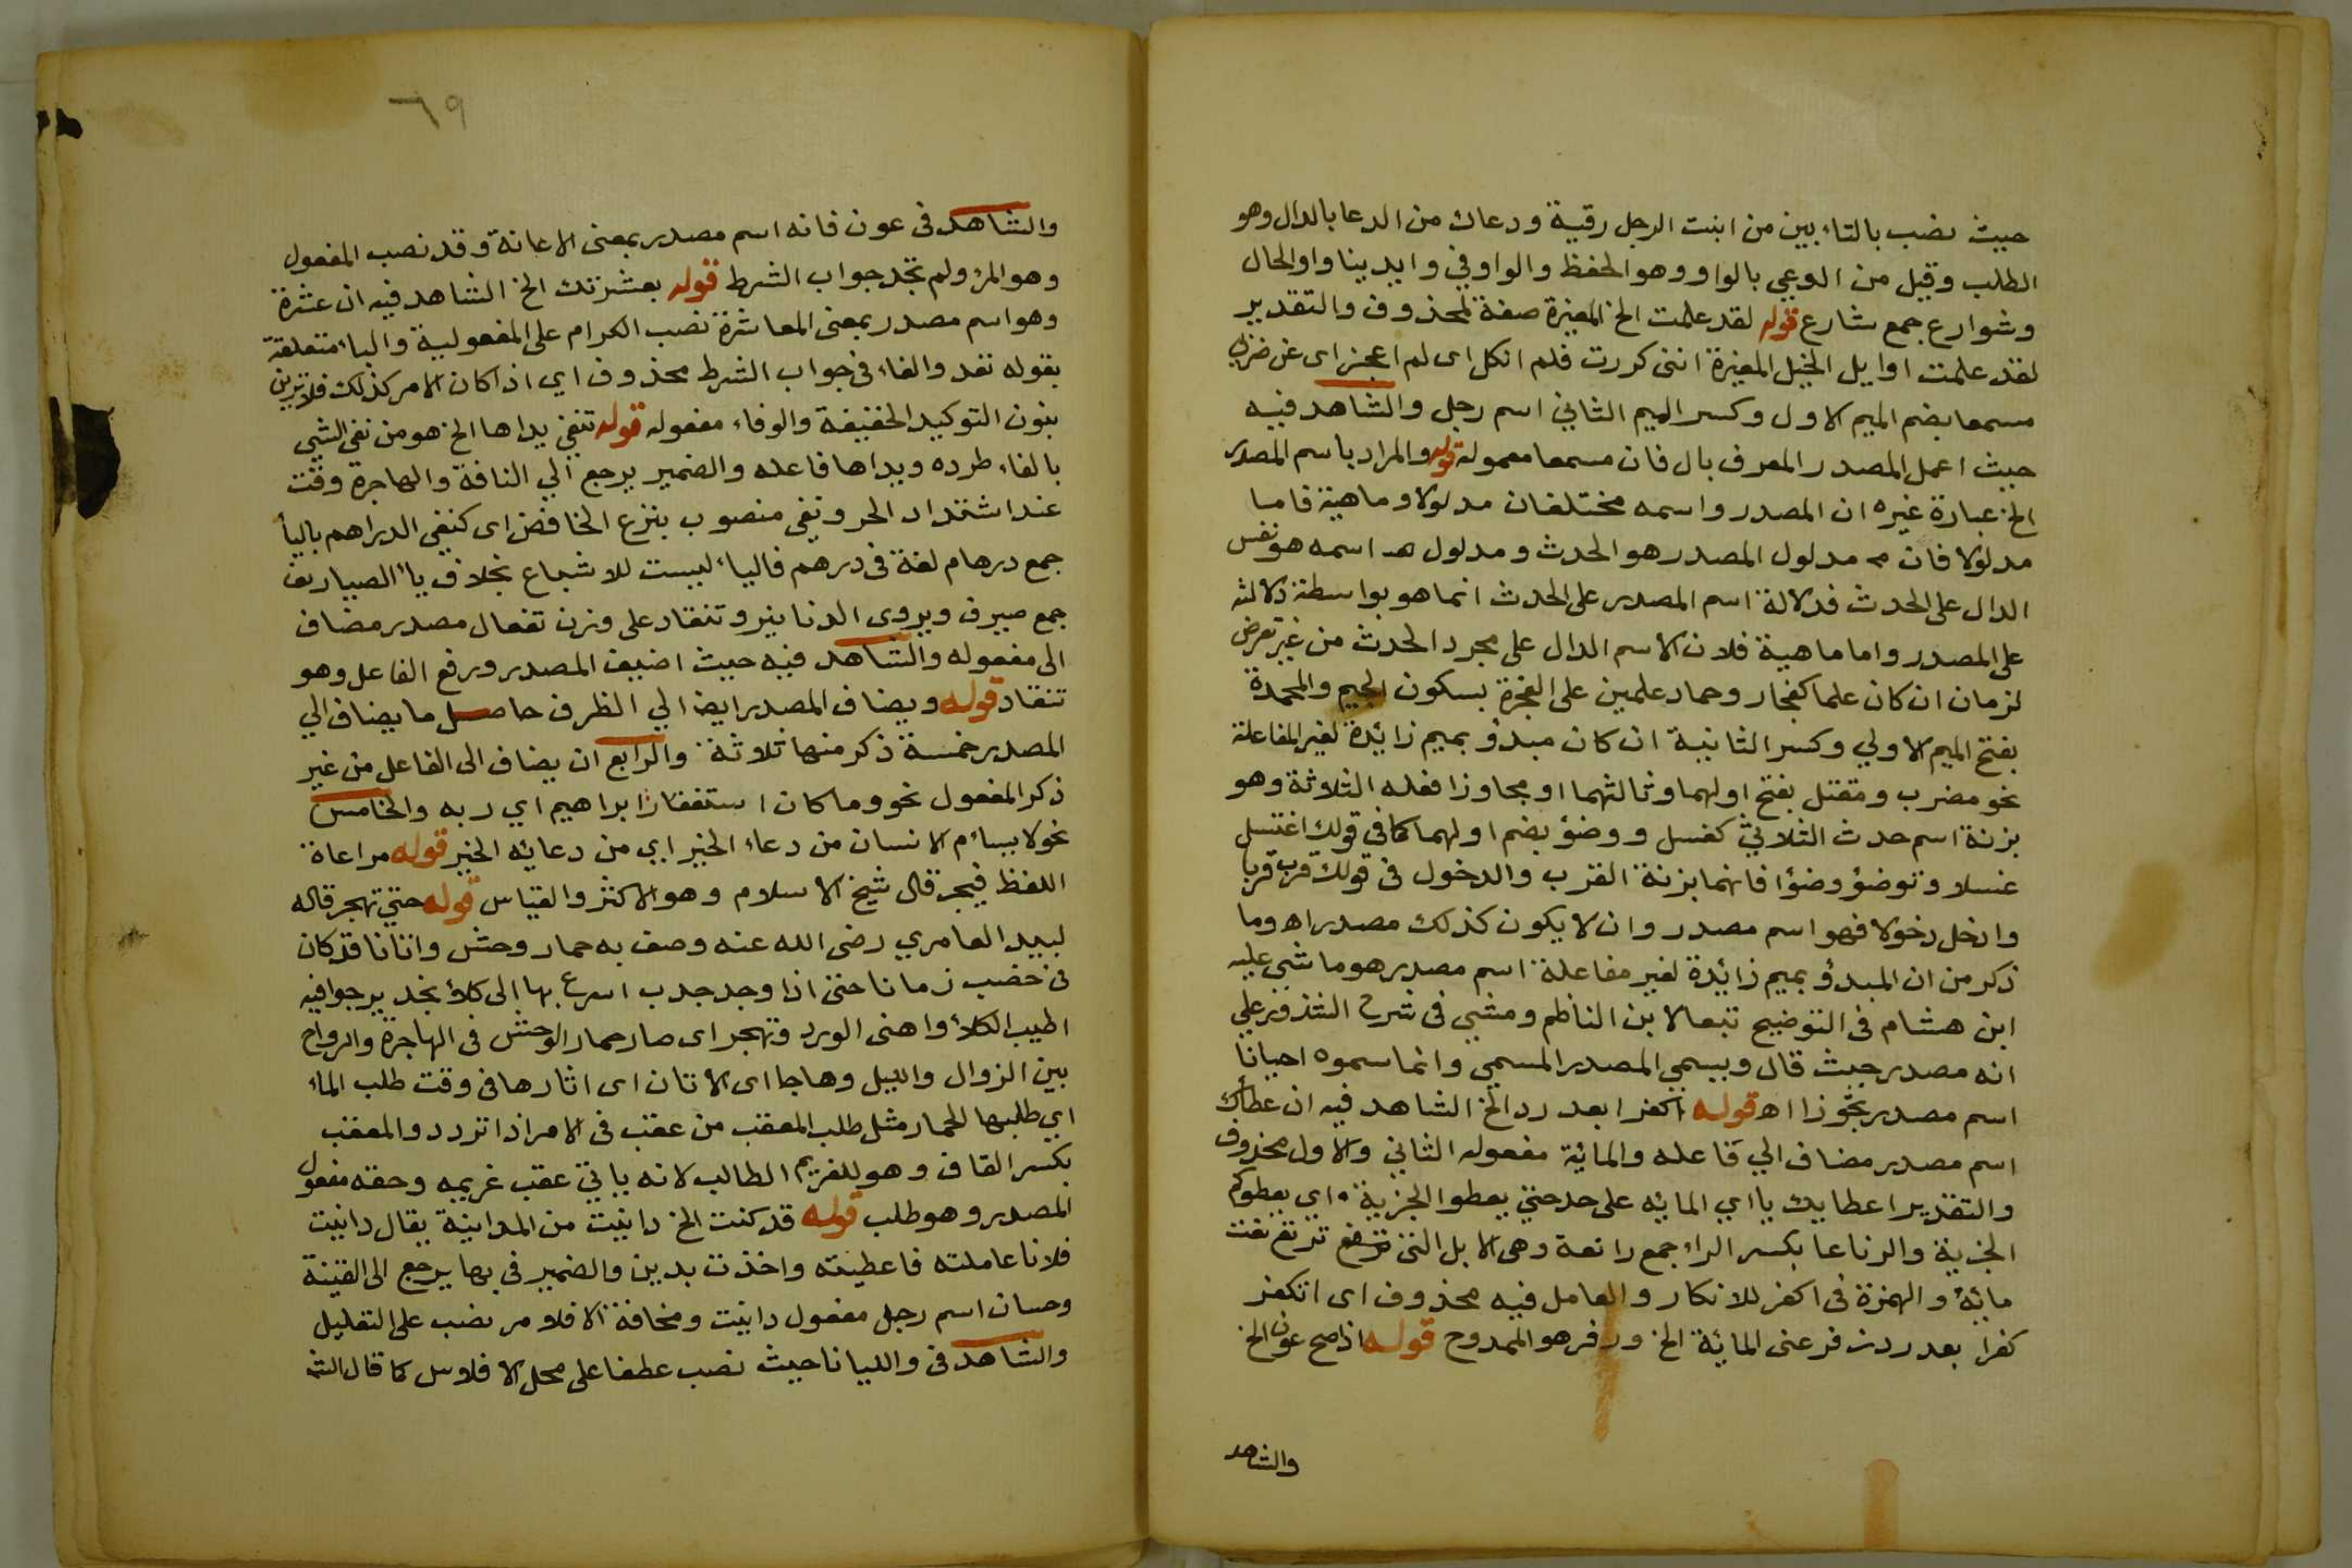 حيث نصب بالتاء بين من ابنت الرجل رقية ودعاك من الدعا بالدال وهو
الطلب وقيل من الوعي بالواو وهو الحفظ والواو في وايدينا واو الحال
وشوارع جمع شارع قوله لقد علمت الخ المغيرة صفة لمحذوف والتقدير
لقد علمت اوايل الخيل المغيرة انني كررت فلم انكل اى لم اعجز اى عن ضرب
مسمعا بضم الميم الاول وكسر الميم الثاني اسم رجل والشاهد فيه
حيث اعمل المصدر المعرف بال فان مسمعا معموله قوله والمراد باسم المصدر
الخ عبارة غيره ان المصدر واسمه مختلفان مدلولا وماهية فاما
مدلولا فان مدلول المصدر هو الحدث ومدلول اسمه هو نفس
الدال على الحدث فدلالة اسم المصدر على الحدث انما هو بواسطة دلالته
على المصدر واما ماهية فلان الاسم الدال على مجرد الحدث من غير تعرض
لزمان ان كان علما كفجار وحماد علمين على الفجرة بسكون الجيم والمحمدة
بفتح الميم الاولي وكسر الثانية ان كان مبدؤ بميم زائدة لغير المفاعلة
نحو مضرب ومقتل بفتح اولهما وثالثهما او مجاوزا فعله الثلاثة وهو
بزنة اسم حدث الثلاثي كغسل ووضؤ بضم اولهما كما في قولك اغتسل
غسلا وتوضؤ وضؤا فانهما بزنة القرب والدخول في قولك قرب قربا
وادخل دخولا فهو اسم مصدر وان لا يكون كذلك مصدر اهـ وما
ذكر من ان المبدؤ بميم زائدة لغير مفاعلة اسم مصدر هو ما شي عليه
ابن هشام في التوضيح تبعا لابن الناظم ومشي في شرح الشذور علي
انه مصدر حيث قال ويسمي المصدر المسمي وانما سموه احيانا
اسم مصدر تجوزا اهـ قوله اكفرا بعد رد الخ الشاهد فيه ان عطائك
اسم مصدر مضاف الي فاعله والمائة مفعوله الثاني والاول محذوف
والتقدير اعطايك يااي المائه على حد حتي يعطوا الجزية اي يعطوكم
الجزية والرتاعا بكسر الراء جمع راتعة وهي الابل التي ترتفع ترتع نعت
مائة والهمزة في اكفر للانكار والعامل فيه محذوف اى اتكفر
كفرا بعد ردت فر عنى المائة الخ وزفر هو الممدوح قوله اذا صح عون الخ
والشاهد
٦٩
والشاهد فى عون فانه اسم مصدر بمعنى الاعانة وقد نصب المفعول
وهو المرؤ ولم تجد جواب الشرط قوله بعشرتك الخ الشاهد فيه ان عشرة
وهو اسم مصدر بمعنى المعاشرة نصب الكرام على المفعولية والباء متعلقة
بقوله تعد والفاء فى جواب الشرط محذوف اي اذا كان الامر كذلك فلا ترين
بنون التوكيد الخفيفة والوفاء مفعوله قوله تنفي يداها الخ هو من نفي الشي
بالفاء طرده ويداها فاعله والضمير يرجع الي الناقة والهاجرة وقت
عند اشتداد الحر ونفي منصوب بنزع الخافض اى كنفى الدراهم بالياء
جمع درهام لغة فى درهم فالياء ليست للاشباع بخلاف ياء الصياريف
جمع صيرف ويروى الدنانير وتنقاد على وزن تفعال مصدر مضاف
الى مفعوله والشاهد فيه حيث اضيف المصدر ورفع الفاعل وهو
تنقاد قوله ويضاف المصدر ايضا الي الظرف حاصل ما يضاف الي
المصدر خمسة ذكر منها ثلاثة والرابع ان يضاف الى الفاعل من غير
ذكر المفعول نحو وما كان استغفار ابراهيم اي ربه والخامس
نحو لا يسائم الانسان من دعاء الخير اي من دعائه الخير قوله مراعاة
اللفظ فيجر قال شيخ الاسلام وهو الاكثر والقياس قوله حتي تهجر قاله
لبيد العامري رضى الله عنه وصف به حمار وحش واتانا قد كان
فى خضب زمانا حتى اذا وجد جدب اسرع بها الى كلاء نجد يرجو فيه
اطيب الكلاء واهنى الورد وتهجر اى صار حمار الوحش فى الهاجرة والرواح
بين الزوال والليل وهاجا اى الاتان اى اثارها فى وقت طلب الماء
اي طلبها للحمار مثل طلب المعقب من عقب فى الامر اذا تردد والمعقب
بكسر القاف وهو للغريم الطالب لانه ياتي عقب غريمه وحقه مفعول
المصدر وهو طلب قوله قد كنت الخ داينت من المداينة يقال داينت
فلانا عاملته فاعطيته واخذت بدين والضمير فى بها يرجع الى القينة
وحسان اسم رجل مفعول داينت ومخافة الافلاس نصب على التعليل
والشاهد فى والليانا حيث نصب عطفا على محل الافلاس كما قال الش